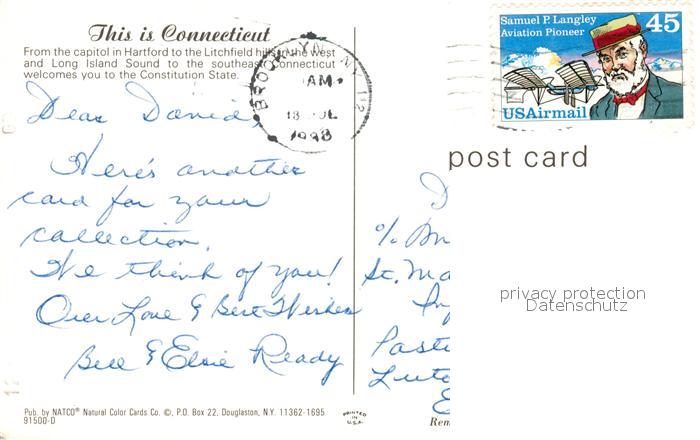 This is Connecticut
From the capitol in Hartford to the Litchfield hills in the west
and Long Island Sound to the southeast, Connecticut
welcomes you to the Constitution State.
BROOKLYN, NY 112
AM
13 JUL
1998
Samuel P. Langley
Aviation Pioneer
45
USAirmail
post card
Dear David,
Here's another
card for your
collection.
We think of you!
Our Love & Best Wishes
Bill & Elsie Ready
D
% Mr
St. Ma
Past
Lute
E
privacy protection
Datenschutz
Pub. by NATCO® Natural Color Cards Co. ©, P.O. Box 22, Douglaston, N.Y. 11362-1695
91500-D
PRINTED
IN
U.S.A.
Rem